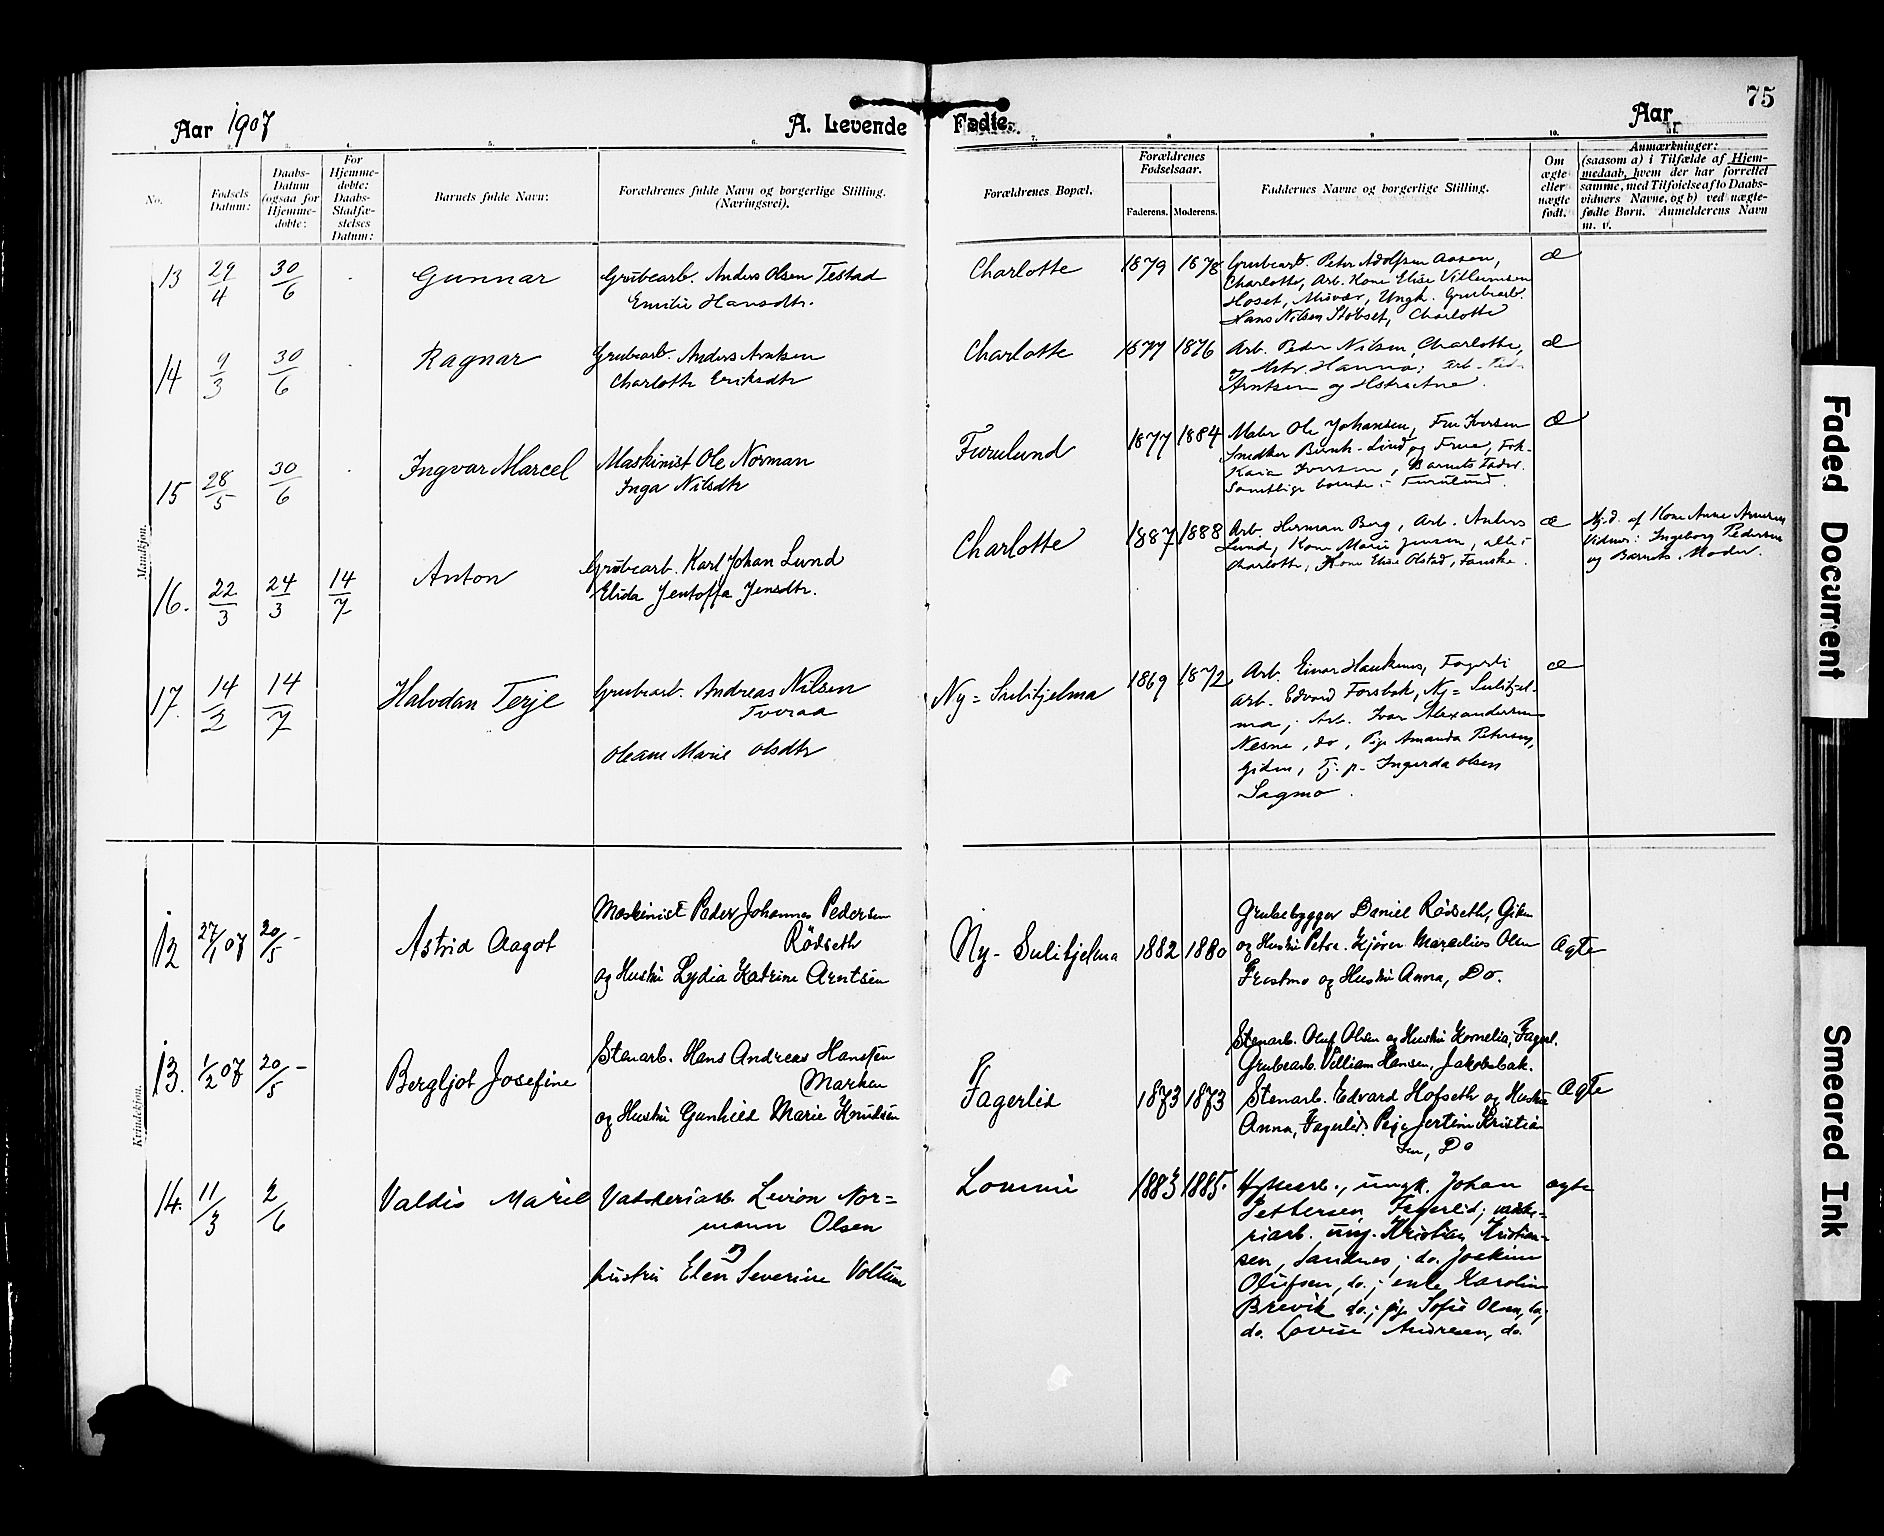 75
Aar 1907
A. Levende Fødte.
Aar
1.
2.
3.
4.
5.
6.
7.
8
9.
10.
No.
Fødsels Datum:
Daabs-Datum (ogsaa for Hjemme-døbte:
For Hjemme-døbte: Daabs-Stadfæ-stelses Datum:
Barnets fulde Navn:
Forældrenes fulde Navn og borgerlige Stilling.
(Næringsvei).
Forældrenes Bopæl.
Forældrenes Fødselsaar.
Faderens. Moderens.
Faddernes Navne og borgerlige Stilling.
Om ægte eller uægte født.
Anmærkninger:
(saasom a) i Tilfælde af Hjem-
medaab, hvem der har forrettet
samme, med Tilføielse af to Daabs-
vidners Navne, og b) ved uægte-
fødte Børn. Anmelderens Navn
m. v.
Mandkjøn.
13 29/4 30/6 Gunnar
Grubearb. Anders Olsen Testad
Emilie Hansdtr.
Charlotte 1879 1878
Grubearb. Peter Adolfsen Aasen,
Charlotte, Arb. Kone Elise Villumsen
Hoset, Misvær, Ungk. Grubearb.
Hans Nilsen Stobset, Charlotte
æ
14 9/3 30/6 Ragnar
Grubearb. Anders Arntsen
Charlotte Eriksdtr
Charlotte 1877 1876
Arb. Peder Nilsen, Charlotte,
og Hstr. Hanna; Arb.
Arntsen og Hstr
æ
15 28/5 30/6 Ingvar Marcel
Maskinist Ole Norman
Inga Nilsdtr
Furulund 1877 1884
Maler Ole Johansen, Fru Iversen
Snedker Bernh. Lind og Frue, Frk.
Kaia Iversen, Barnets Fader.
Samtlige boende i Furulund.
æ
16. 22/3 24/3 14/7 Anton
Grubearb. Karl Johan Lund
Elida Jentoffa Jensdtr.
Charlotte 1887 1888
Arb. Herman Berg, Arb. Anders
Lund, Kone Marie Jensen, alle i
Charlotte, Kone Elise Olstad, Fauske.
æ
Hj.d. af Kone Anne Arnesen
Vidner: Ingeborg Pedersen
og Barnets Moder.
17. 14/2 14/7 Halvdan Terje
Grubearb. Andreas Nilsen
Tveraa
Oleane Marie Olsdtr
Ny-Sulitjelma 1869 1872
Arb. Einar Haukenes, Fagerli
Arb. Edvard Forsbak, Ny-Sulitjel-
ma; Arb. Ivar Alexandersen
Nesne, do, Pige Amanda Petersen,
Giken, Tj. p. Ingerda Olsen
Sagmo.
æ
Kvindekjøn.
12 27/1 07 20/5 - Astrid Aagot
Maskinist Peder Johannes Pedersen
Rödseth
og Hustru Lydia Katrine Arntsen
Ny-Sulitjelma 1882 1880
Grubebygger Daniel Rödseth, Giken
og Hustru Petra. Kjörer Marselius Olsen
Frostmo og Hustru Anna, Do.
Ægte
13. 1/2 07 20/5 - Bergljot Josefine
Stenarb. Hans Andreas Hansen
Marken
og Hustru Gunhild Marie Knudsen
Fagerlid 1873 1873
Stenarb. Oluf Olsen og Hustru Kornelia, Fagerl.
Grubearb. Villiam Hansen, Jakobsbak.
Stenarb. Edvard Hofseth og Hustru
Anna, Fagerlid. Pige Jertine Kristian
sen, Do
Ægte
14. 11/3 2/6 Valdis Marie
Vaskeriarb. Levion Nor-
mann Olsen
og
hustru Elen Severine Voltum
Lommi 1883 1885.
Hyttearb., ungk. Johan
Pettersen Fagerlid; vaske-
riarb. ung. Kristian Kristian-
sen, Sandnes; do. Joakim
Olufsen, do.; enke Karoline
Brevik do.; pig. Sofie Olsen, do;
do. Lovise Andresen, do.
ægte
Faded Document
Smeared Ink